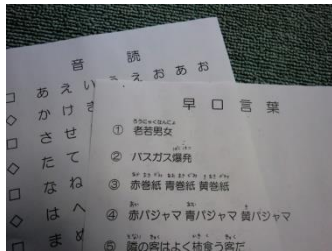 音 読
あ え い う え お あ お
か け き
さ せ
た て
な ね
は へ
ま め
早 口 言 葉
① 老若男女
② バスガス爆発
③ 赤巻紙 青巻紙 黄巻紙
④ 赤パジャマ 青パジャマ 黄パジャマ
⑤ 隣の客はよく柿食う客だ